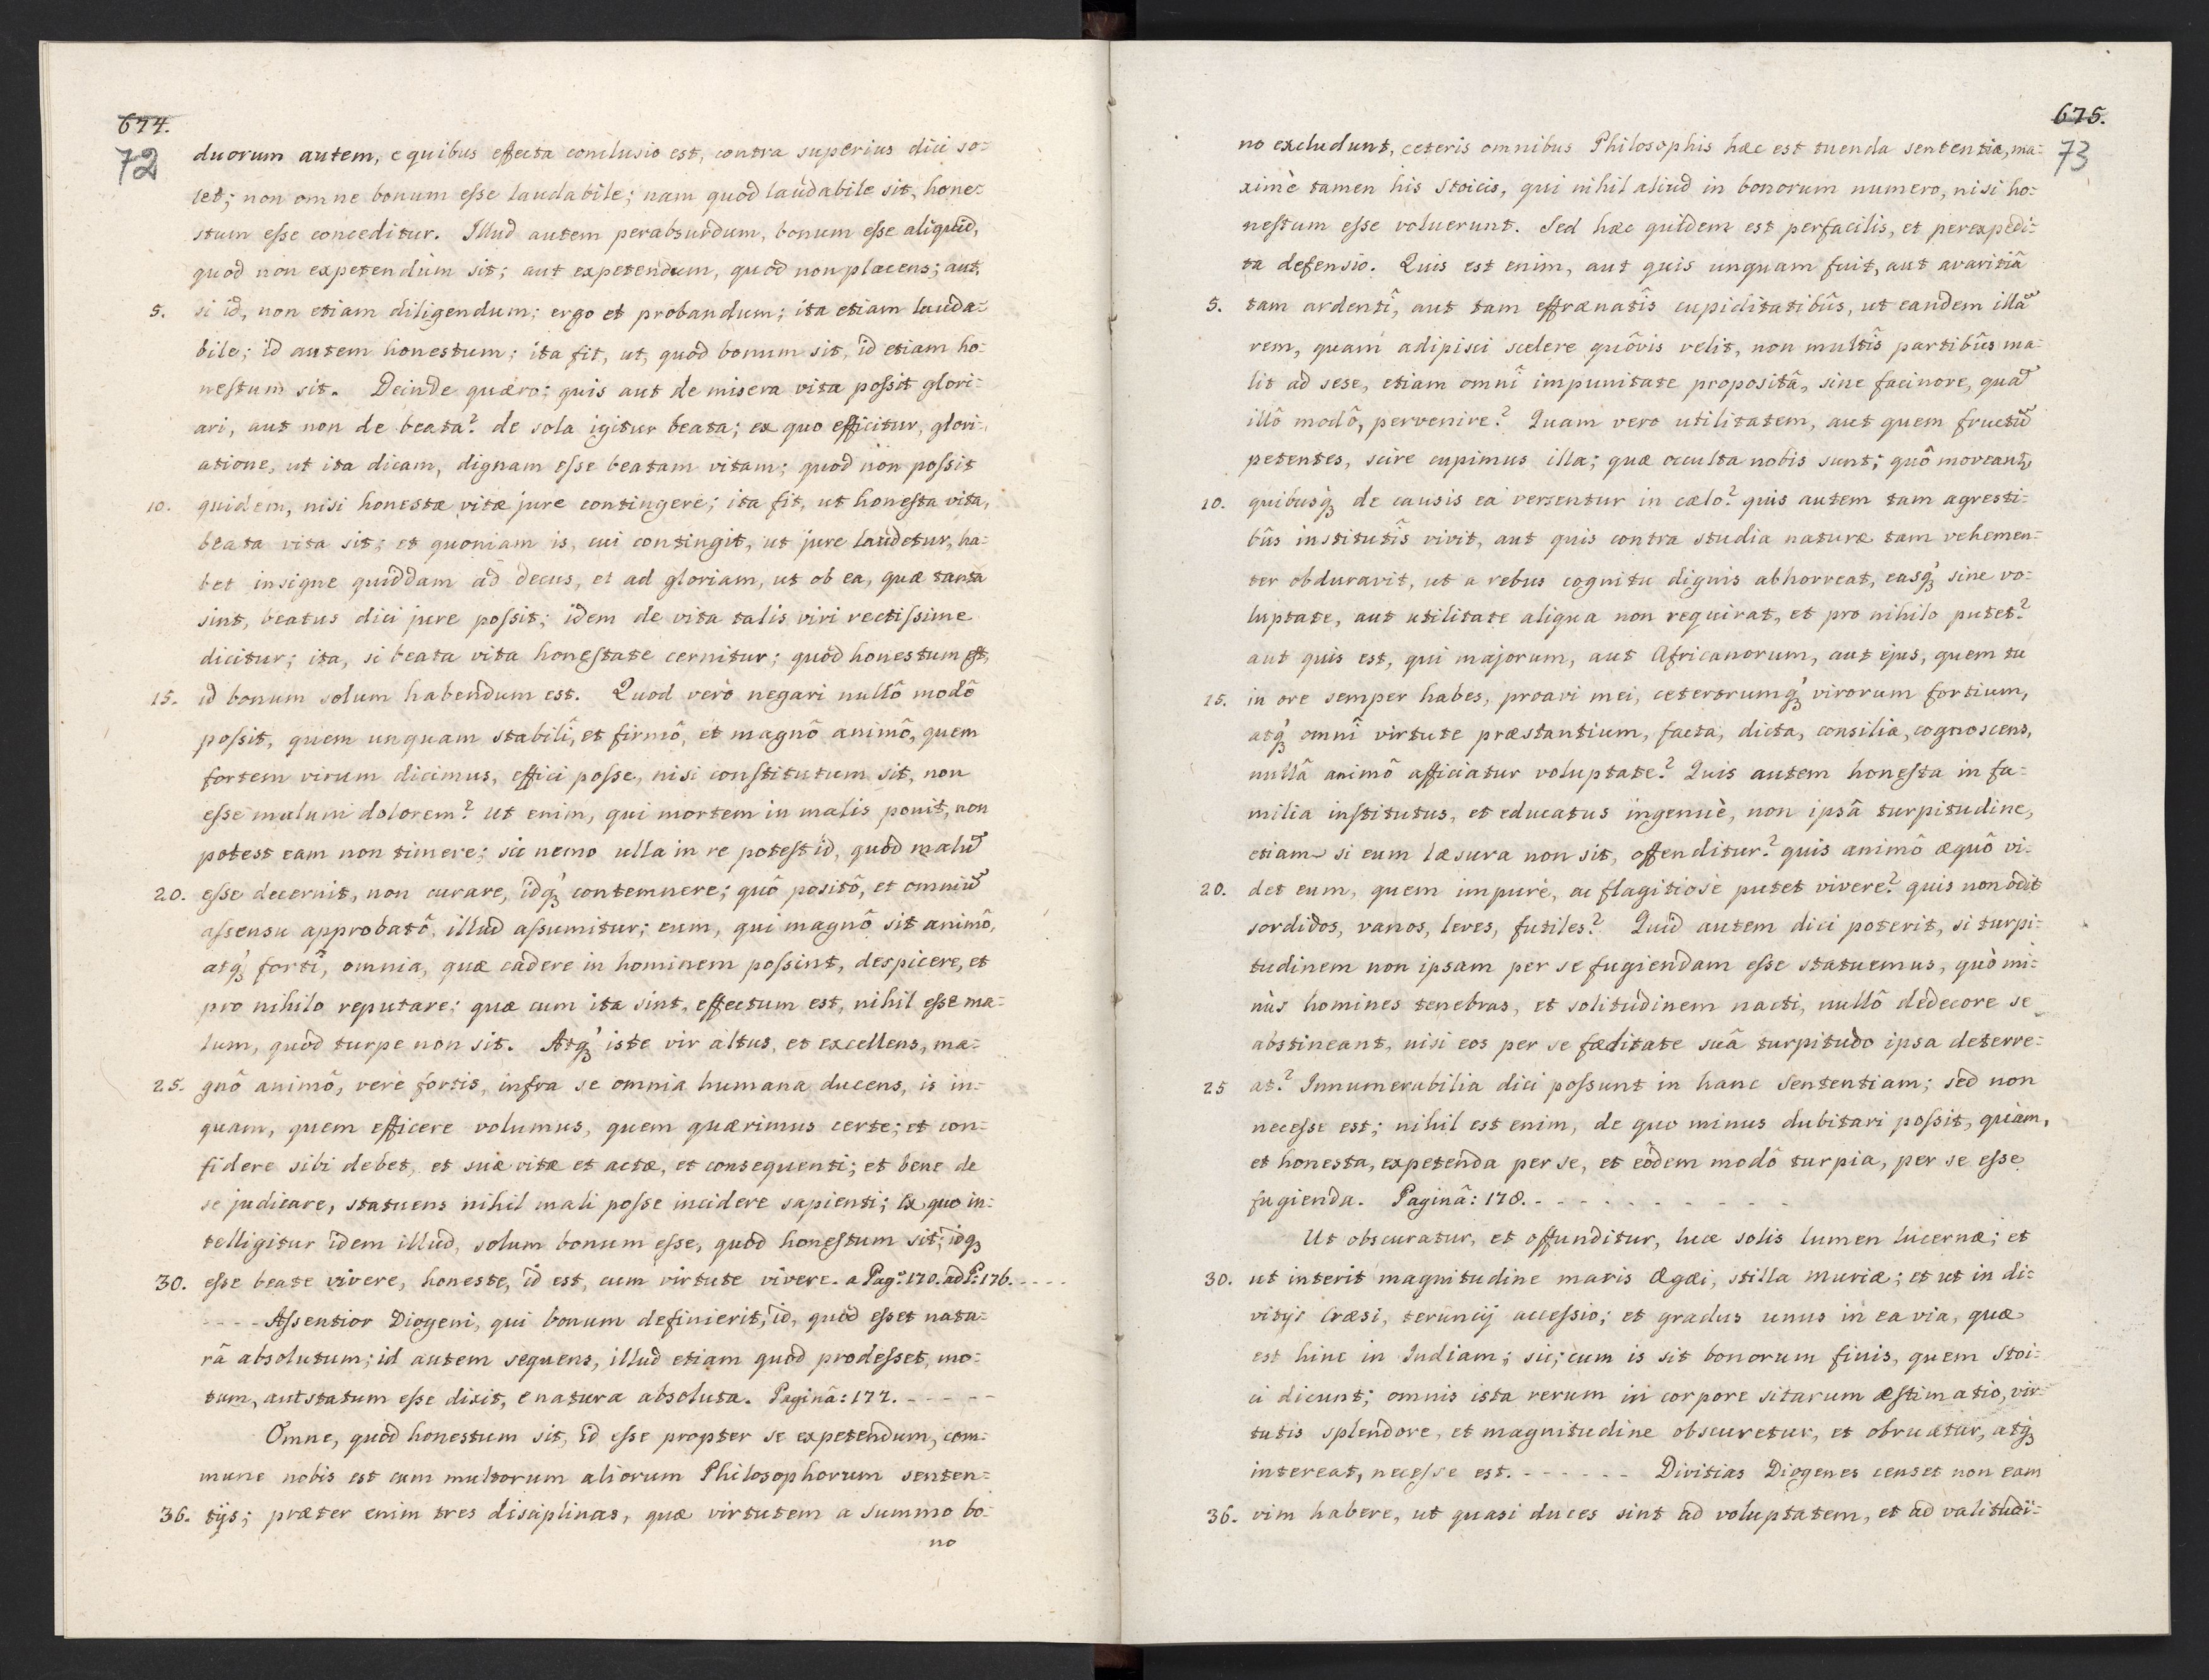 674.
72
duorum autem, e quibus effecta conclusio est, contra superius dici so:
let; non omne bonum esse laudabile; nam quod laudabile sit, hone:
stum esse conceditur. Illud autem perabsurdum, bonum esse aliquid,
quod non expetendum sit; aut expetendum, quod non placens; aut,
5. si id, non etiam diligendum; ergo et probandum; ita etiam lauda:
bile; id autem honestum; ita fit, ut, quod bonum sit, id etiam ho:
nestum sit. Deinde quæro: quis aut de misera vita possit glori:
ari, aut non de beata? de sola igitur beata; ex quo efficitur, glori:
atione, ut ita dicam, dignam esse beatam vitam; quod non possit
10. quidem, nisi honestæ vitæ jure contingere; ita fit, ut honesta vita,
beata vita sit; et quoniam is, cui contingit, ut jure laudetur, ha:
bet insigne quiddam ad decus, et ad gloriam, ut ob ea, quæ tanta
sint, beatus dici jure possit; idem de vita talis viri rectissime
dicitur; ita, si beata vita honestate cernitur; quod honestum est,
15. id bonum solum habendum est. Quod verò negari nullô modô
possit, quem unquam stabilî, et firmô, et magnô animô, quem
fortem virum dicimus, effici posse, nisi constitutum sit, non
esse malum dolorem? ut enim, qui mortem in malis ponit, non
potest eam non timere; sic nemo ulla in re potest id, quod malũ
20. esse decernit, non curare, idq́ꝫ contemnere; quô positô, et omniũ
assensu approbatô, illud assumitur; eum, qui magnô sit animô,
atq́ꝫ fortî, omnia, quæ cadere in hominem possint, despicere, et
pro nihilo reputare; quæ cum ita sint, effectum est, nihil esse ma:
lum, quod turpe non sit. Atq́ꝫ iste vir altus, et excellens, ma:
25. gnô animô, verè fortis, infra se omnia humana ducens, is in:
quam, quem efficere volumus, quem quærimus certe; et con:
fidere sibi debet, et suæ vitæ et actæ, et consequenti; et bene de
se judicare, statuens nihil mali posse incidere sapienti; Ex quo in:
telligitur idem illud, solum bonum esse, quod honestum sit; idqꝫ
30. esse beate vivere, honeste, id est, cum virtute vivere. a Pag: 170. ad P: 176. - - - -
- - - - Assentior Diogeni, qui bonum definierit, id, quod esset natu:
râ absolutum; id autem sequens, illud etiam quod prodesset, mo:
tum, aut statum esse dixit, e natura absoluta. Paginâ: 177. - - - - -
Omne, quod honestum sit, id esse propter se expetendum, com:
mune nobis est cum multorum aliorum Philosophorum senten:
36. tijs; præter enim tres disciplinas, quæ virtutem a summo bo:
no
675.
73
no excludunt, ceteris omnibus Philosophis hæc est tuenda sententia, ma:
ximè tamen his Stoicis, qui nihil aliud in bonorum numero, nisi ho:
nestum esse voluerunt. Sed hæc quidem est perfacilis, et perexpedi:
ta defensio. Quis est enim, aut quis unquam fuit, aut avaritiâ
5. tam ardentî, aut tam effrænatîs cupiditatibûs, ut eandem illã
rem, quam adipisci scelere quôvis velit, non multîs partibûs ma:
lit ad sese, etiam omnî impunitate propositâ, sine facinore, quã
illô modô, pervenire? Quam vero utilitatem, aut quem fructũ
petentes, scire cupimus illa; quæ occulta nobis sunt; quô moveant,
10. quibusq́ꝫ de causis ea versentur in cælo? quis autem tam agresti:
bûs institutîs vivit, aut quis contra studia naturæ tam vehemen:
ter obduravit, ut a rebus cognitu dignis abhorreat, easq́ꝫ sine vo:
luptate, aut utilitate aliqua non requirat, et pro nihilo putet?
aut quis est, qui majorum, aut Africanorum, aut ejus, quem tu
15. in ore semper habes, proavi mei, ceterorumq́ꝫ virorum fortium,
atq́ꝫ omnî virtute præstantium, facta, dicta, consilia, cognoscens,
nullâ animô afficiatur voluptate? Quis autem honesta in fa:
milia institutus, et educatus ingenuè, non ipsâ turpitudine,
etiam si eum læsura non sit, offenditur? quis animô æquô vi:
20. det eum, quem impurè, ac flagitiosè putet vivere? quis non odit
sordidos, vanos, leves, futiles? Quid autem dici poterit, si turpi:
tudinem non ipsam per se fugiendam esse statuemus, quò mi:
nùs homines tenebras, et solitudinem nacti, nullô dedecore se
abstineant, nisi eos per se fæditate suâ turpitudo ipsa deterre:
25 at? Innumerabilia dici possunt in hanc Sententiam; sed non
necesse est; nihil est enim, de quo minus dubitari possit, quàm,
et honesta, expetenda per se, et eôdem modô turpia, per se esse
fugienda. Paginâ: 178. - - - - - - - - - - -
Ut obscuratur, et offunditur, luce solis lumen lucernæ; et
30. ut interit magnitudine maris Ægæi, stilla muriæ; et ut in di:
vitijs Cræsi, teruncij accessio; et gradus unus in ea via, quæ
est hinc in Indiam; sic; cum is sit bonorum finis, quem Stoi:
ci dicunt; omnis ista rerum in corpore sitarum æstimatio, vir:
tutis splendore, et magnitudine obscuretur, et obruatur, atqꝫ
intereat, necesse est. - - - - - - Divitias Diogenes censet non eam
36. vim habere, ut quasi duces sint ad voluptatem, et ad valitudi: